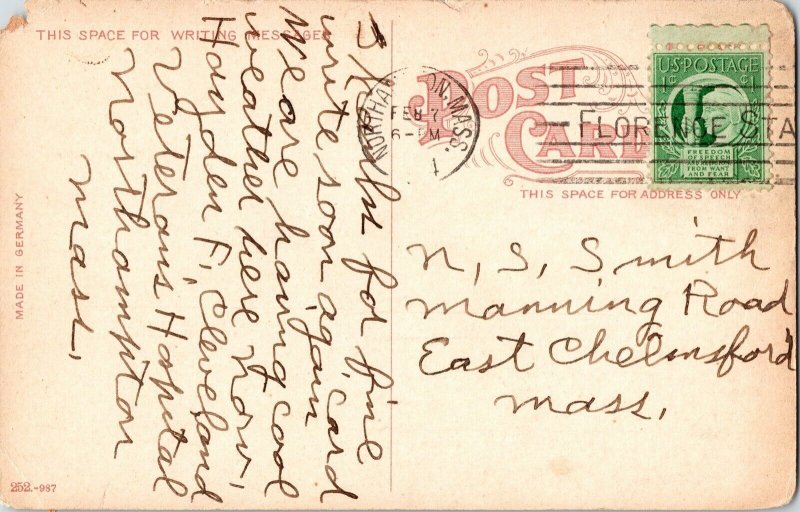 THIS SPACE FOR WRITING MESSAGES
Thks for fine card
write soon again
We are having cool
weather here now.
Hayden F. Cleveland
Veteran's Hospital
Northampton
Mass.
MADE IN GERMANY
252.-987
POST
CARD
THIS SPACE FOR ADDRESS ONLY
NORTHAMPTON, MASS.
FEB 7
6-PM
1
FLORENCE STA
US POSTAGE
1¢ 1¢
FREEDOM
OF SPEECH
AND RELIGION
FROM WANT
AND FEAR
N. S. Smith
Manning Road
East Chelmsford
Mass.